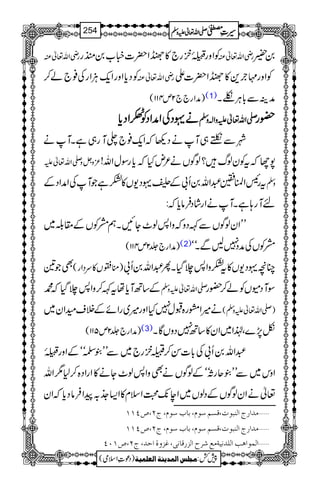 سیرتِ مصطفی صلی اللہ تعالیٰ علیہ وسلم 254
بن حضیر رضی اللہ تعالیٰ عنہ کو اور قبیلۂ خزرج کا جھنڈا حضرت خباب بن منذر رضی اللہ تعالیٰ عنہ
کو اور مہاجرین کا جھنڈا حضرت علی رضی اللہ تعالیٰ عنہ کو دیا اور ایک ہزار کی فوج لے کر
مدینہ سے باہر نکلے۔(1) (مدارج ج۲ ص۱۱۴)
حضور صلی اللہ تعالیٰ علیہ والہ وسلم نے یہود کی امداد کو ٹھکرا دیا
شہر سے نکلتے ہی آپ نے دیکھا کہ ایک فوج چلی آ رہی ہے۔ آپ نے
پوچھا کہ یہ کون لوگ ہیں؟ لوگوں نے عرض کیا کہ یارسول اللہ! عزوجل وصلی اللہ تعالیٰ علیہ
وسلم یہ رئیس المنافقین عبداللہ بن اُبی کے حلیف یہودیوں کا لشکر ہے جو آپ کی امداد کے
لئے آ رہا ہے۔ آپ نے ارشاد فرمایا کہ:
’’ان لوگوں سے کہہ دو کہ واپس لوٹ جائیں۔ ہم مشرکوں کے مقابلہ میں
مشرکوں کی مدد نہیں لیں گے۔‘‘(2) (مدارج جلد۲ ص۱۱۴)
چنانچہ یہودیوں کا یہ لشکر واپس چلا گیا۔ پھر عبداللہ بن اُبی (منافقوں کا سردار) بھی جو تین
سو آدمیوں کو لے کر حضور صلی اللہ تعالیٰ علیہ وسلم کے ساتھ آیا تھا یہ کہہ کر واپس چلا گیا کہ محمد
(صلی اللہ تعالیٰ علیہ وسلم) نے میرا مشورہ قبول نہیں کیا اور میری رائے کے خلاف میدان میں
نکل پڑے، لہٰذا میں ان کا ساتھ نہیں دوں گا۔(3) (مدارج جلد۲ ص۱۱۵)
عبداللہ بن اُبی کی بات سن کر قبیلۂ خزرج میں سے ’’بنوسلمہ‘‘ کے اور قبیلۂ
اوس میں سے ’’بنو حارثہ‘‘ کے لوگوں نے بھی واپس لوٹ جانے کا ارادہ کر لیا مگر اللہ
تعالیٰ نے ان لوگوں کے دلوں میں اچانک محبت اسلام کا ایسا جذبہ پیدا فرما دیا کہ ان
.....مدارج النبوت، قسم سوم، باب سوم، ج۲، ص۱۱۴
.....مدارج النبوت، قسم سوم، باب سوم، ج۲، ص۱۱۴
.....المواهب اللدنية مع شرح الزرقانی، غزوة احد، ج۲، ص۴۰۱
پیش کش: مجلس المدينة العلمية (دعوتِ اسلامی)